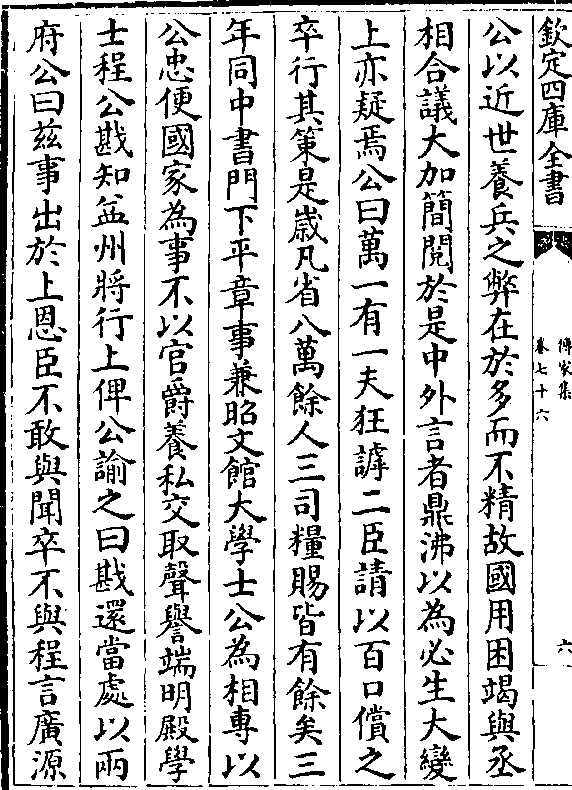 欽定四庫全書
傳家集
卷七十六
六
公以近世養兵之弊在於多而不精故國用困竭與丞
相合議大加簡閱於是中外言者鼎沸以為必生大變
上亦疑焉公曰萬一有一夫狂謼二臣請以百口償之
卒行其策是歲凡省八萬餘人三司糧賜皆有餘矣三
年同中書門下平章事兼昭文館大學士公為相專以
公忠便國家為事不以官爵養私交取聲譽端明殿學
士程公戡知益州將行上俾公諭之曰戡還當處以兩
府公曰茲事出於上恩臣不敢與聞卒不與程言廣源